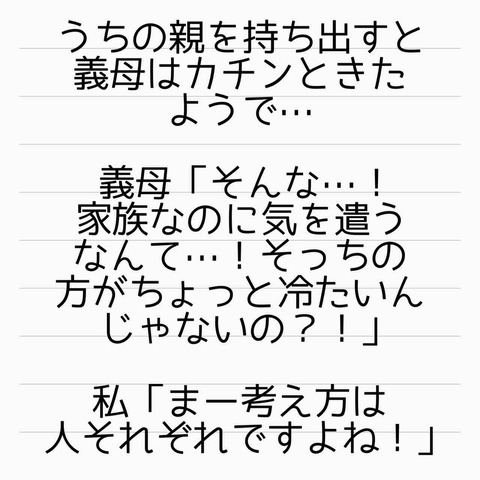 うちの親を持ち出すと
義母はカチンときた
ようで…
義母「そんな…！
家族なのに気を遣う
なんて…！そっちの
方がちょっと冷たいん
じゃないの？！」
私「まー考え方は
人それぞれですよね！」